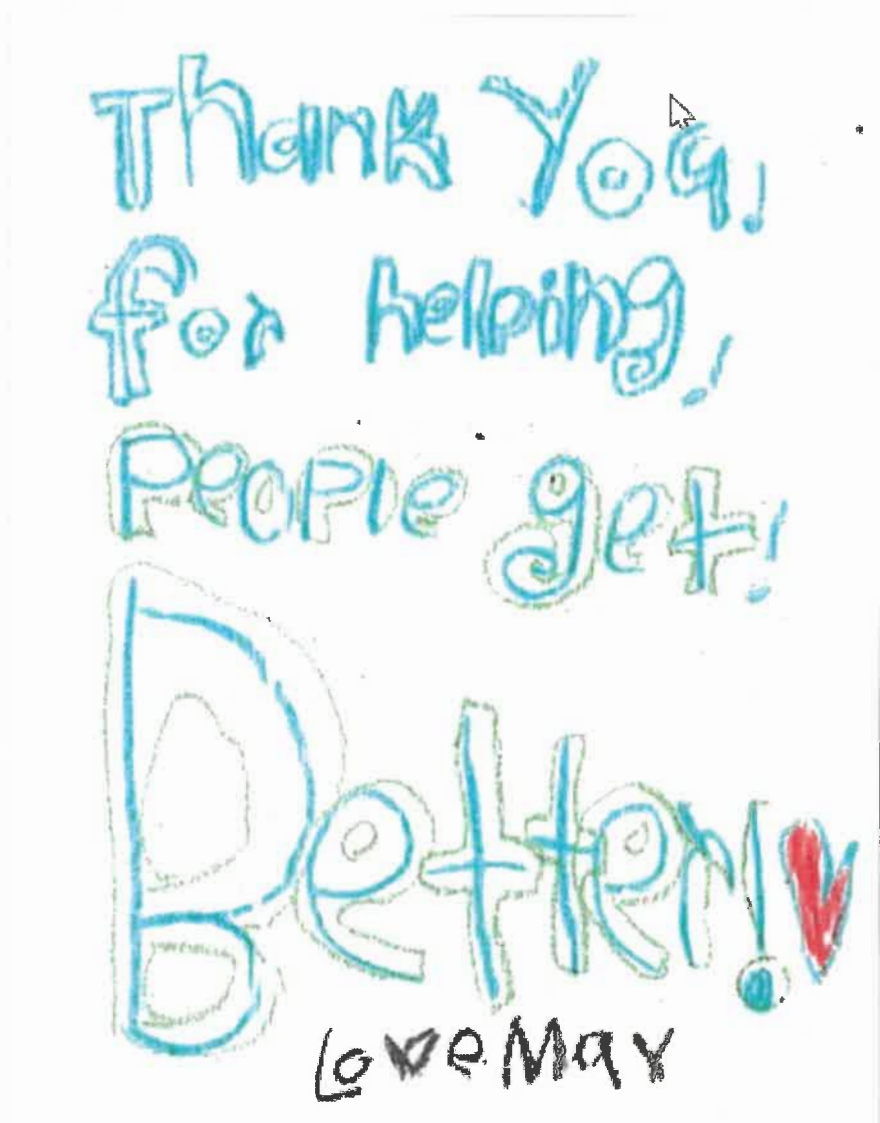 Thank You!
for helping!
People get!
Better!
Love May